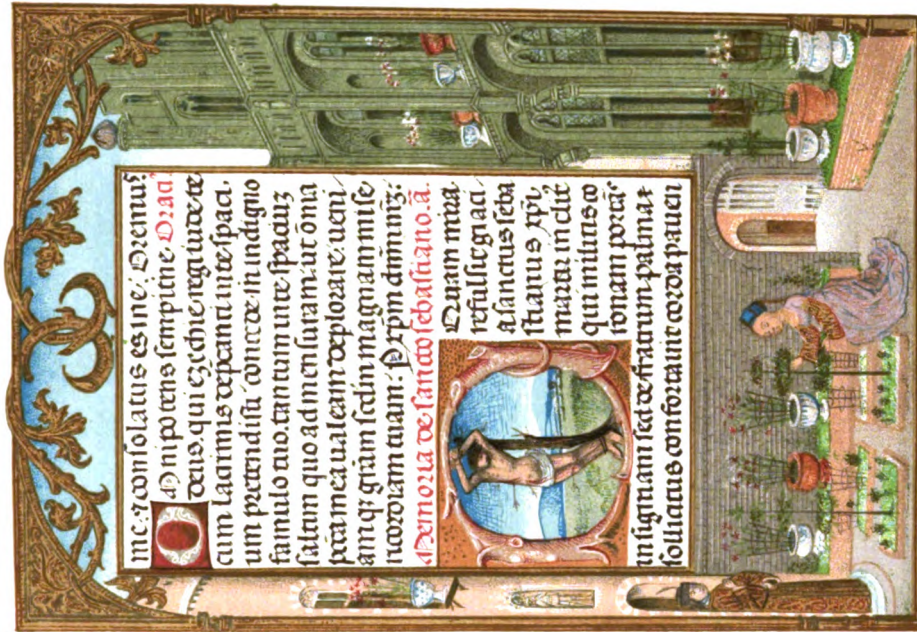 me: ⁊ consolatus es me: Oremus
Omnipotens sempitne Oraci'
deus. qui ezechie regi iude te
cum lacrimis depcanti vite spaci
um pretendisti concede in indigno
famulo tuo. tantum vite spaciuz
saltim quo ad mensuram. ut omia
pctā mea valeam deplorare: veni
am qz grām scdm magnam mise
ricordiam tuam: Per xpm dnm nrz:
Memoria de sancto sebastiano. ā.
Quam mira
refulsit graci
a sanctus seba
stianus xpi,
martir inclit'
qui militans co
ronam portes
insigniam sed de fratrum palma ⁊
sollicitus confortavit corda paven